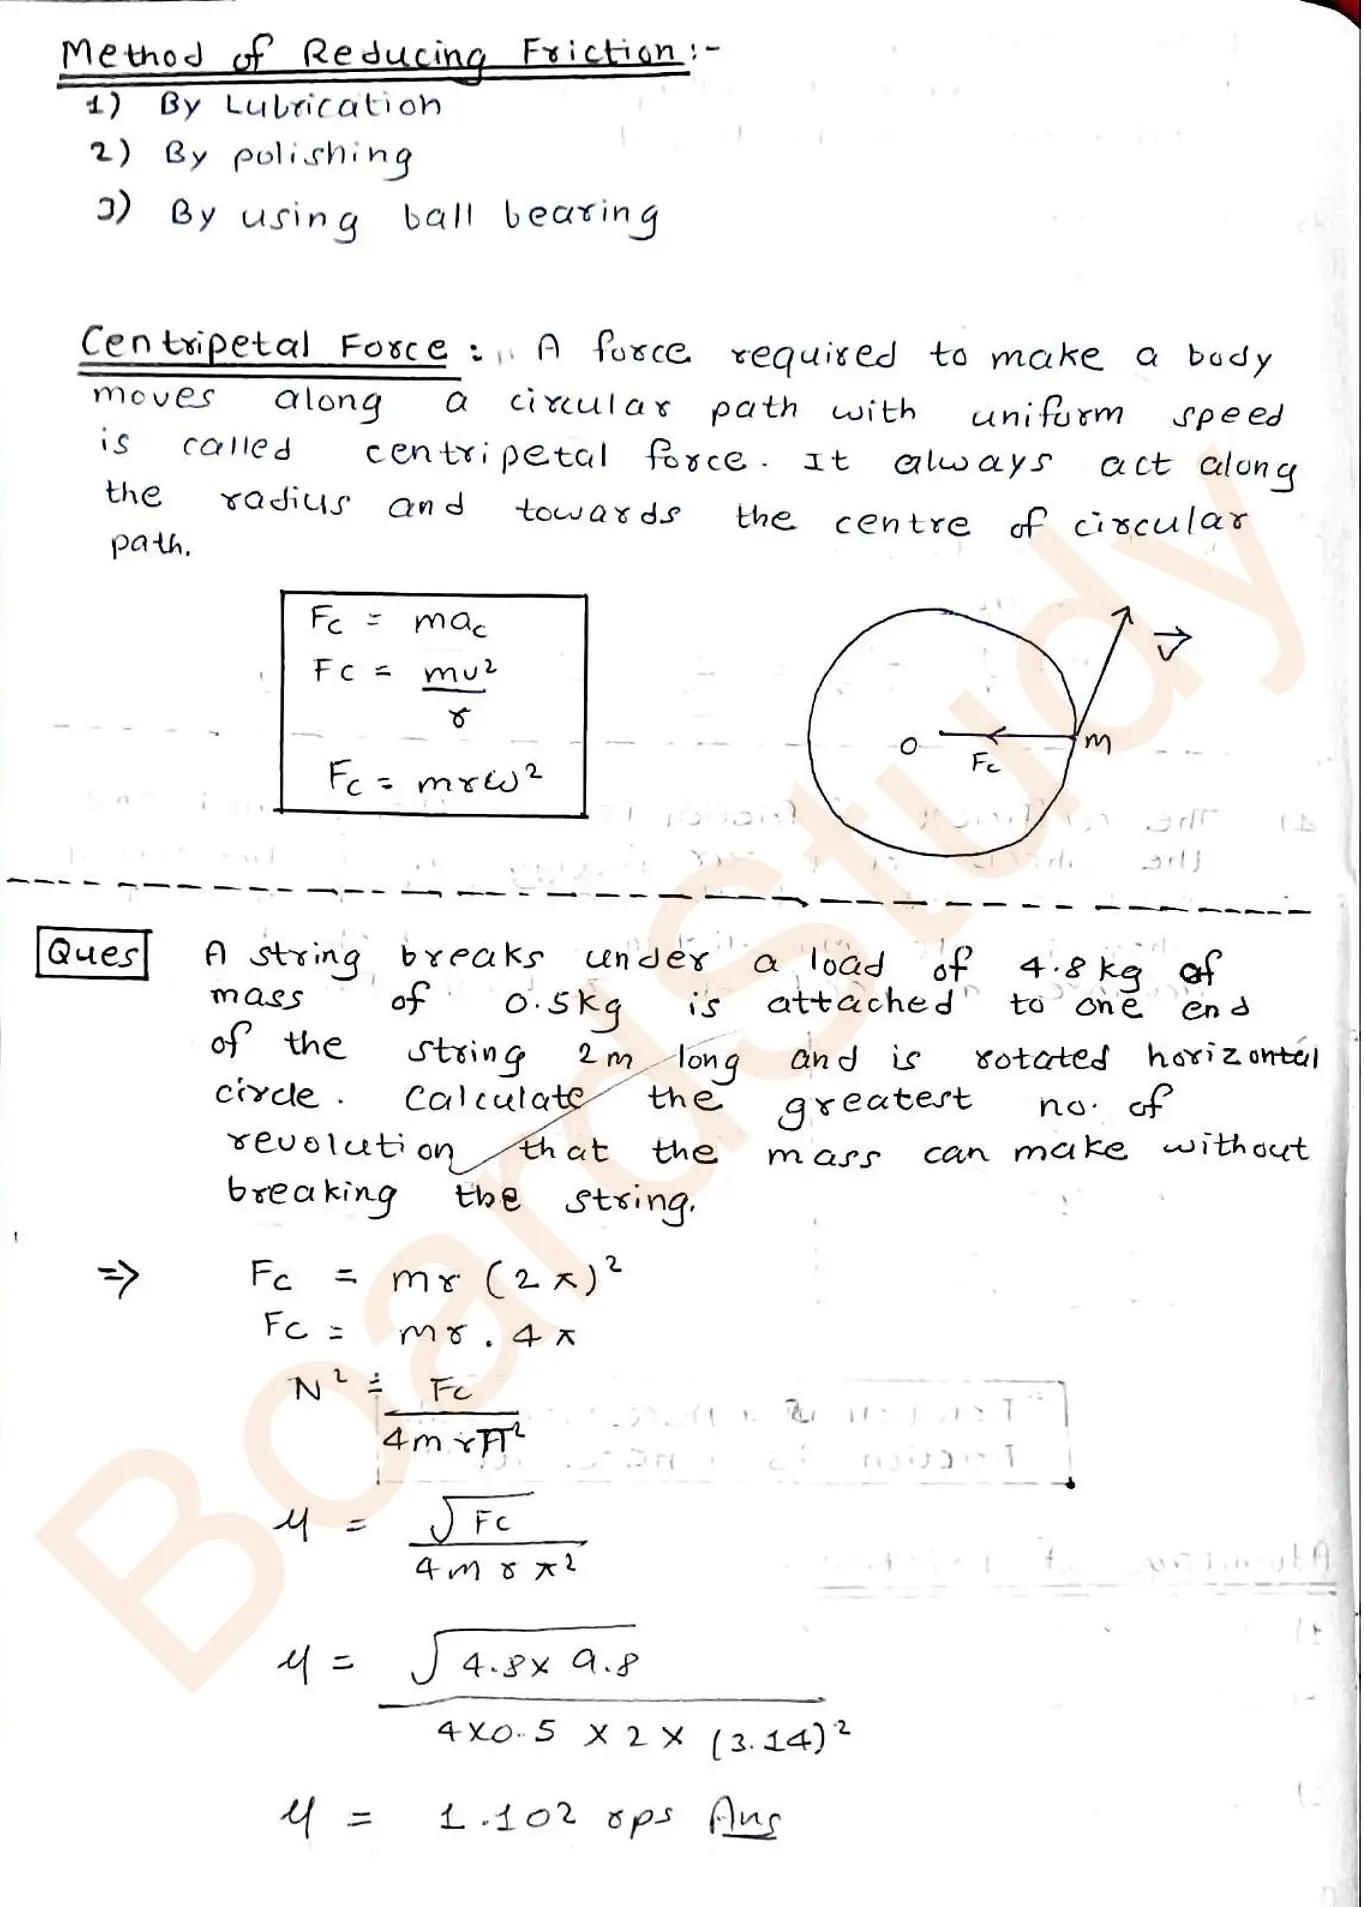 Method of Reducing Friction :-
1) By Lubrication
2) By polishing
3) By using ball bearing
Centripetal Force : A force required to make a body
moves along a circular path with uniform speed
is called centripetal force. It always act along
the radius and towards the centre of circular
path.
Fc = mac
Fc = mv²
r
Fc = mrω²
V
O
Fc
m
Ques A string breaks under a load of 4.8 kg of
mass of 0.5kg is attached to one end
of the string 2m long and is rotated horizontal
circle. Calculate the greatest no. of
revolution that the mass can make without
breaking the string.
=> Fc = mr (2π)²
Fc = mr . 4π
N² = Fc
4mrπ²
μ = √Fc
4mrπ²
μ = √4.8x 9.8
4x0.5 x 2 x (3.14)²
μ = 1.102 rps Ans
BoardStudy